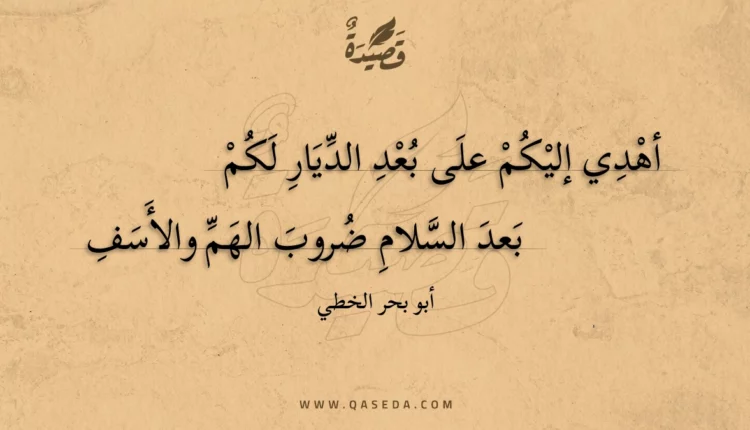 قَصِيدَةٌ
أهْدِي إليْكُمْ علَى بُعْدِ الدِّيَارِ لَكُمْ
بَعدَ السَّلامِ ضُروبَ الهَمِّ والأَسَفِ
أبو بحر الخطي
WWW.QASEDA.COM